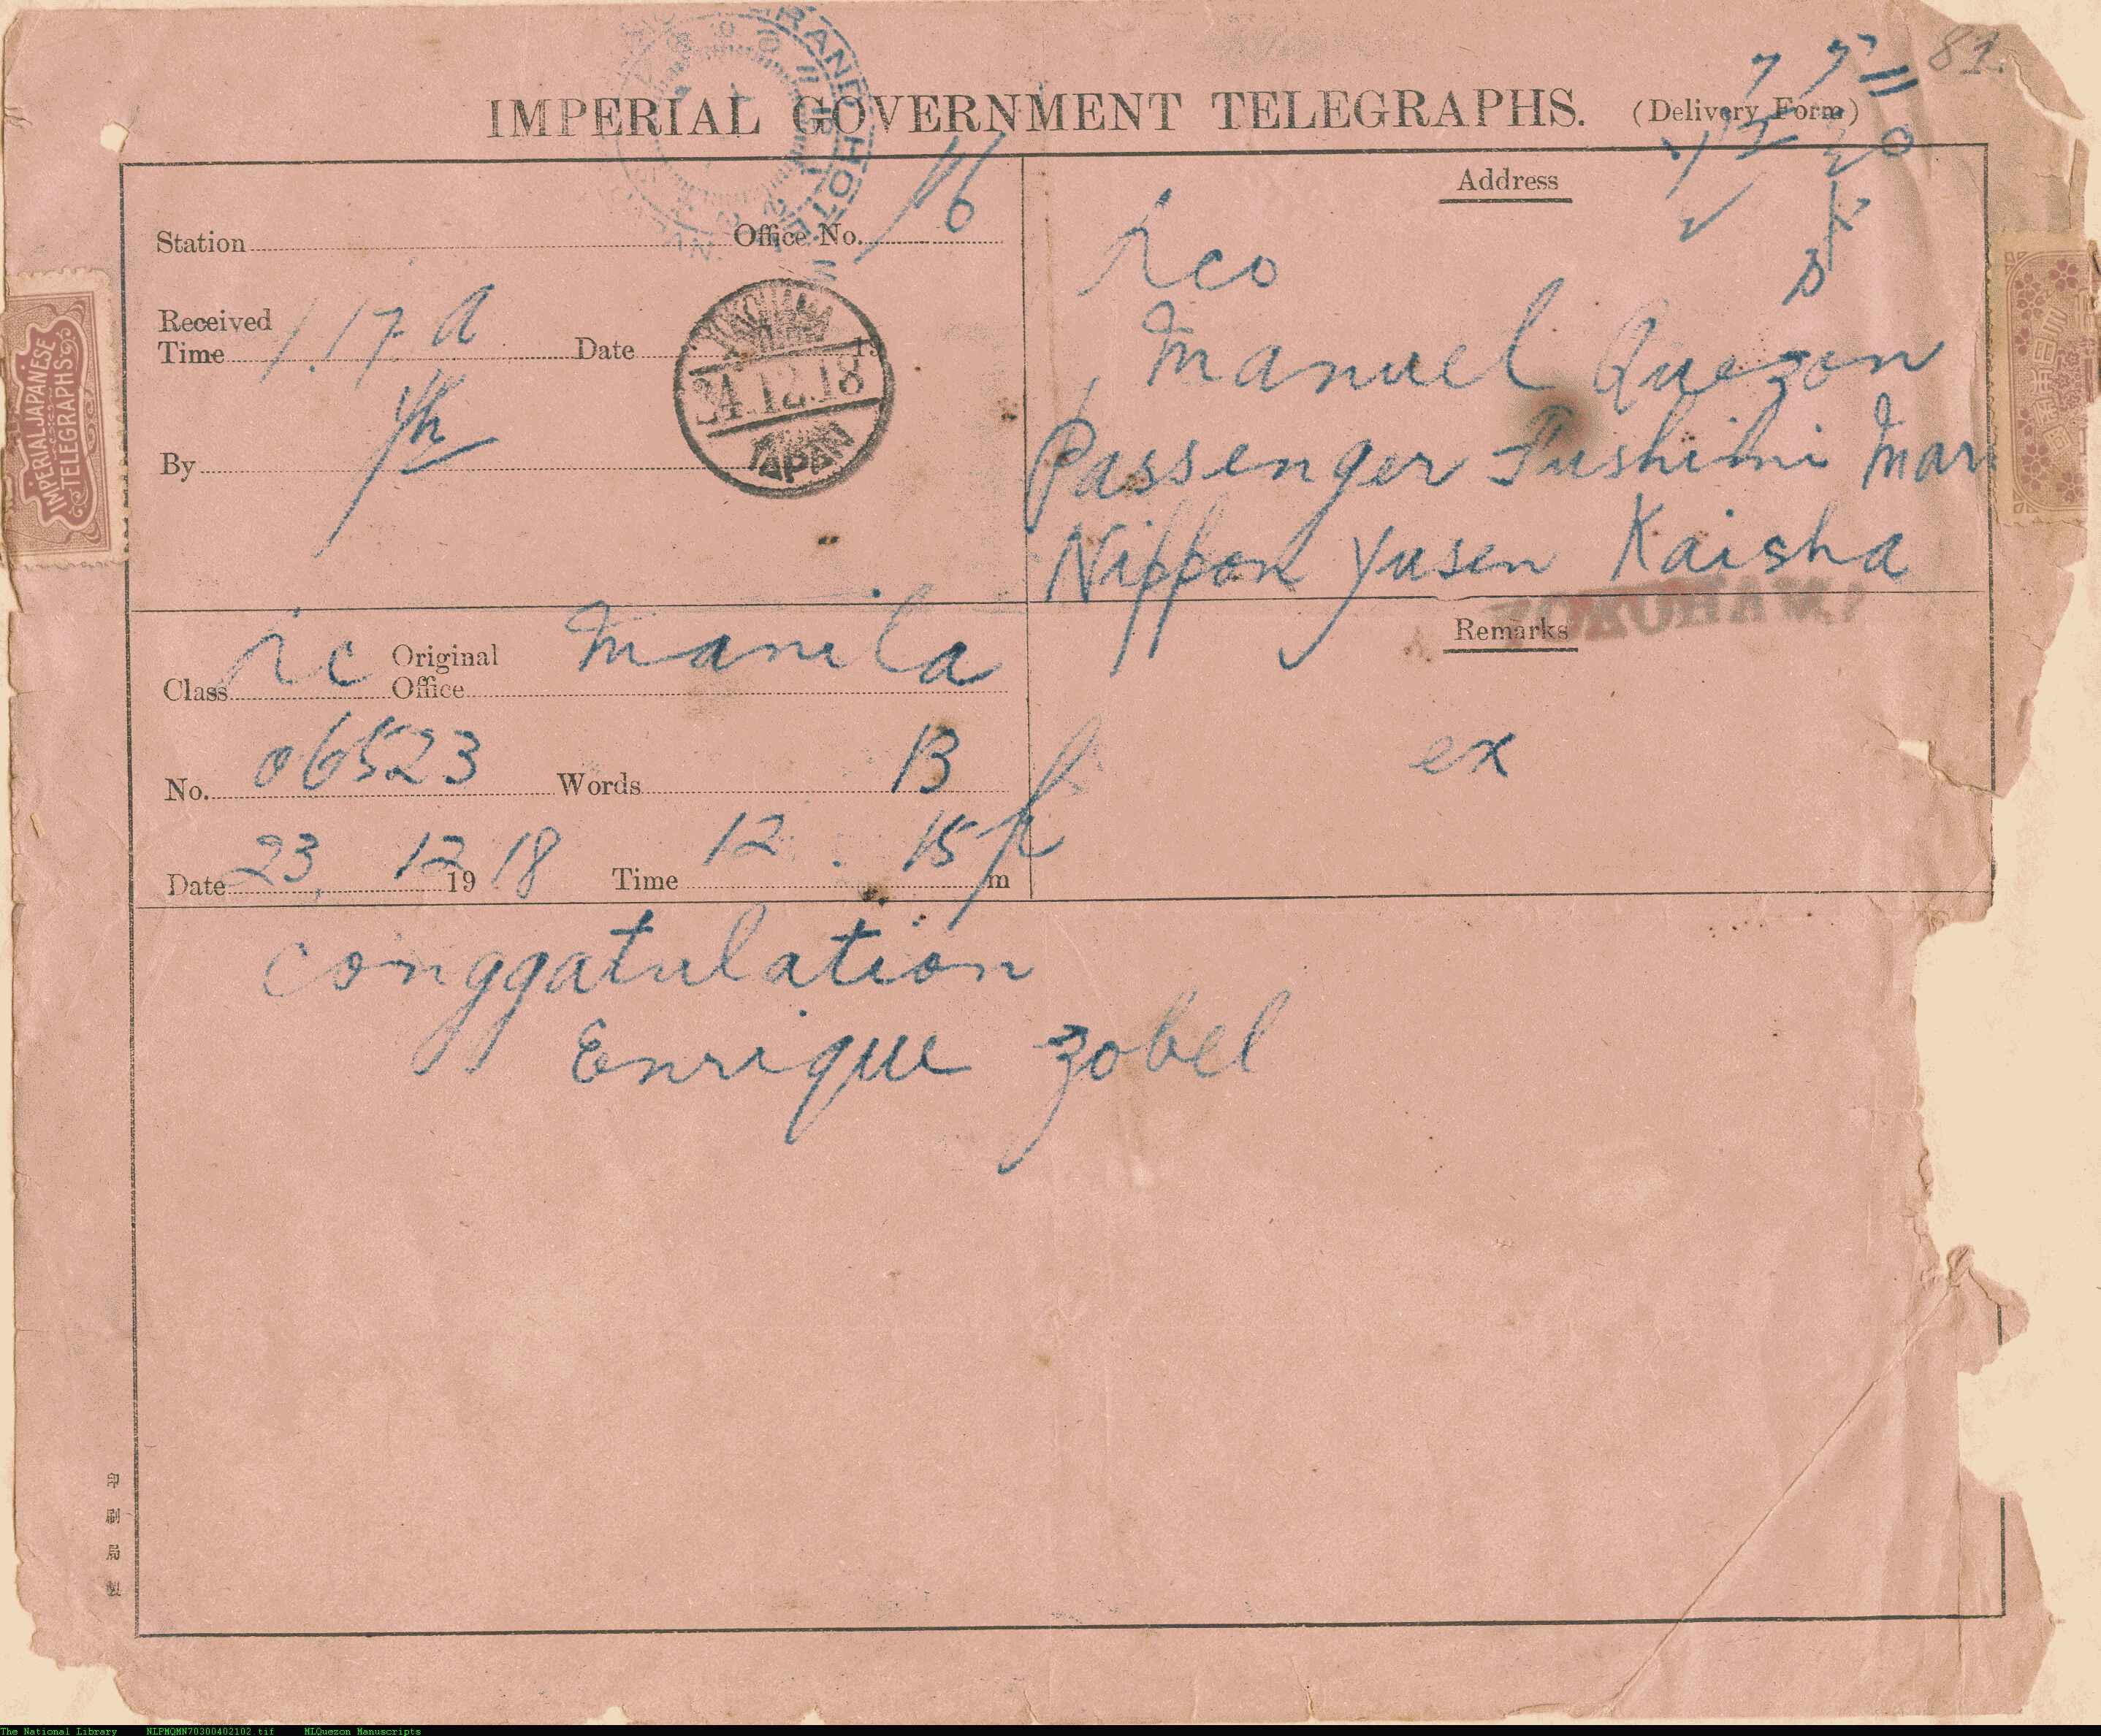 81.
IMPERIAL GOVERNMENT TELEGRAPHS. (Delivery Form)
GRAND HOTEL
Station Office No. 16
Received
Time 1.17 A Date 19
24.12.18
JAPAN
By
Address
rco
Manuel Quezon
Passenger Fushimi Mar
Nippon Yusen Kaisha
Class rc Original Office Manila
No. 06523 Words 13
Date 23, 12 1918 Time 12 . 15 p m
Remarks
YOKOHAMA
ex
Conggatulation
Enrique Zobel
IMPERIAL JAPANESE
TELEGRAPHS
The National Library NLPMQMN70300402102.tif MLQuezon Manuscripts